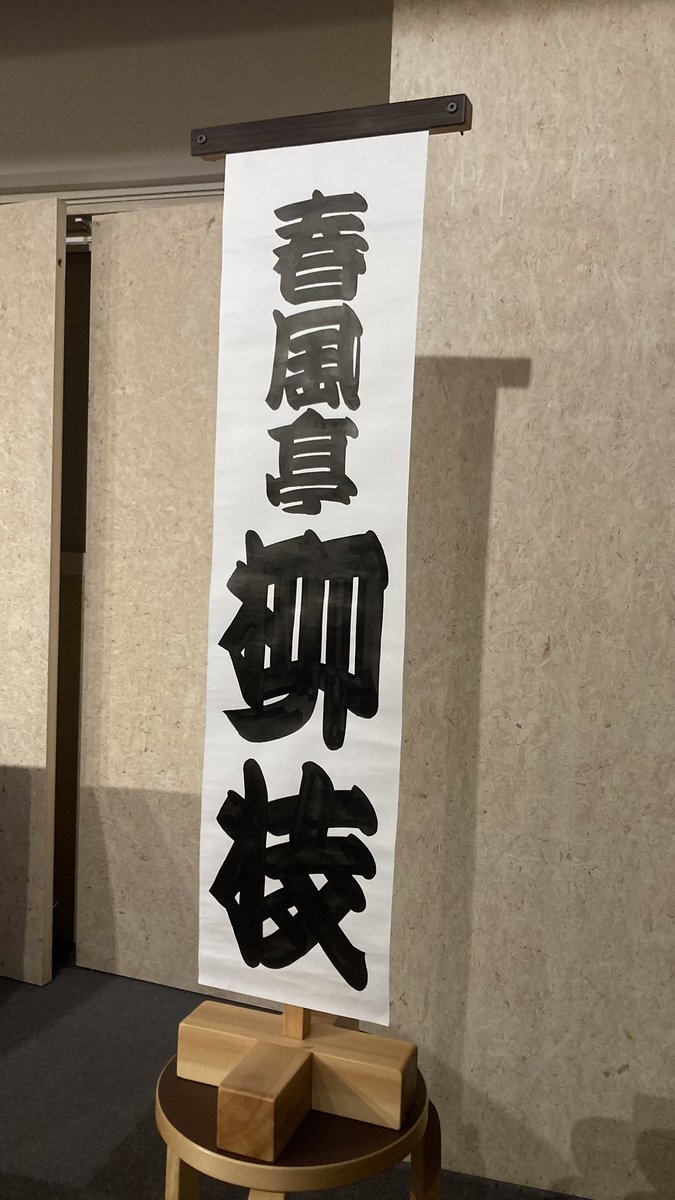 春風亭柳枝